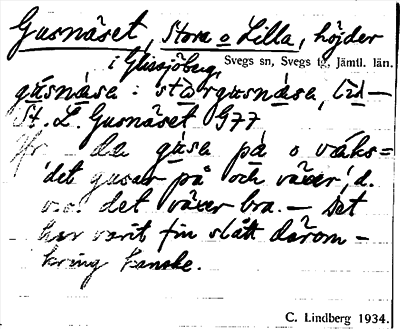 Gusnäset, Stora o Lilla, höjder
i Glissjöberg,
Svegs sn, Svegs tg, Jämtl. län.
gusnása: stòrgusnása, Lil-
St. L. Gusnäset G77
da gusa på o våks=
'det gusar på och växer', d.
v.s. det växer bra. - Det
har varit fin slått därom-
kring kanske.
C. Lindberg 1934.